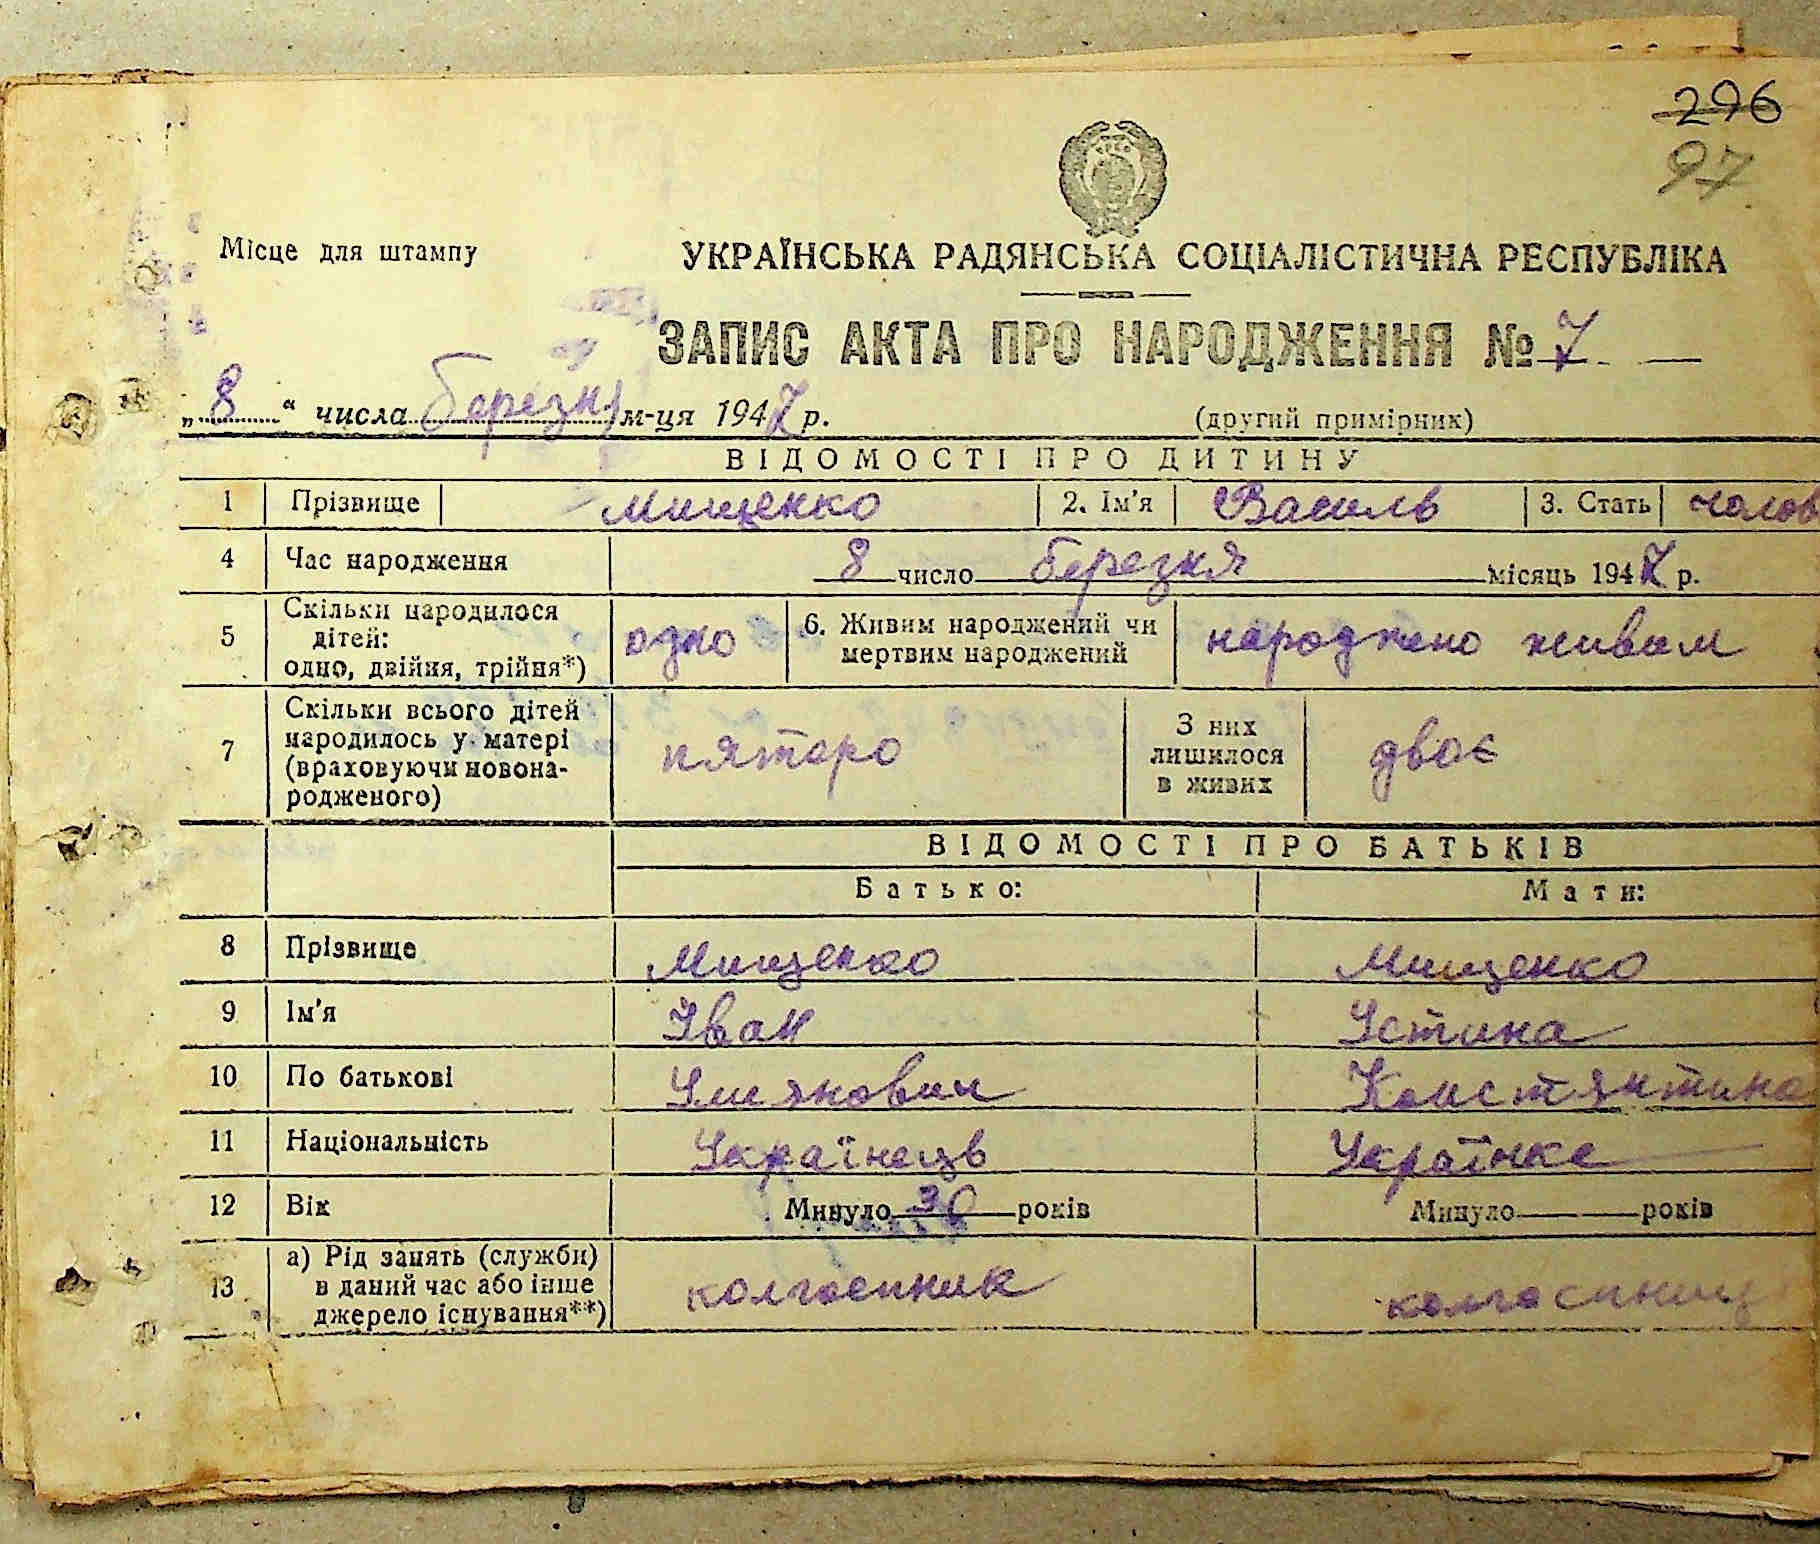 296
97
Місце для штампу
УКРАЇНСЬКА РАДЯНСЬКА СОЦІАЛІСТИЧНА РЕСПУБЛІКА
ЗАПИС АКТА ПРО НАРОДЖЕННЯ № 7
„8“ числа березня м-ця 1947 р. (другий примірник)
ВІДОМОСТІ ПРО ДИТИНУ
1 Прізвище Мищенко 2. Ім'я Василь 3. Стать чолов
4 Час народження 8 число березня місяць 1947 р.
5 Скільки народилося дітей: одно, двійня, трійня*) одно 6. Живим народжений чи мертвим народжений народжено живим
7 Скільки всього дітей народилось у матері (враховуючи новонародженого) пятеро З них лишилося в живих двоє
ВІДОМОСТІ ПРО БАТЬКІВ
Батько: Мати:
8 Прізвище Мищенко Мищенко
9 Ім'я Іван Устина
10 По батькові Костянтина
11 Національність Українець Українка
12 Вік Минуло 30 років Минуло років
13 а) Рід занять (служби) в даний час або інше джерело існування**) колгоспник колгоспниц